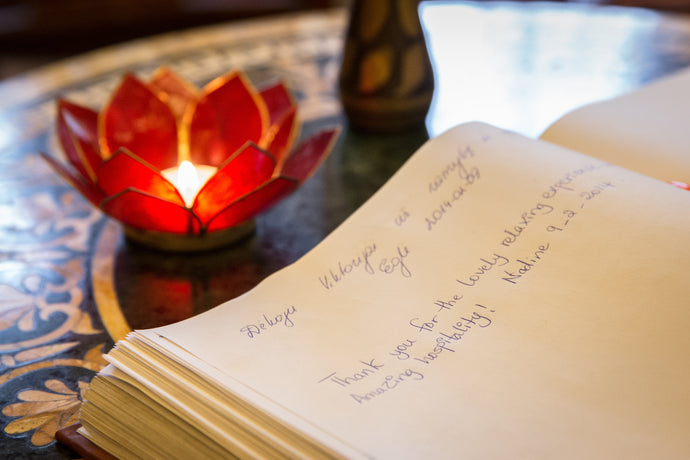 Dekoju Viktorijai už masažą
Eglė 2014.02.09
Thank you for the lovely relaxing experience.
Amazing hospitality! Nadine 9-2-2014